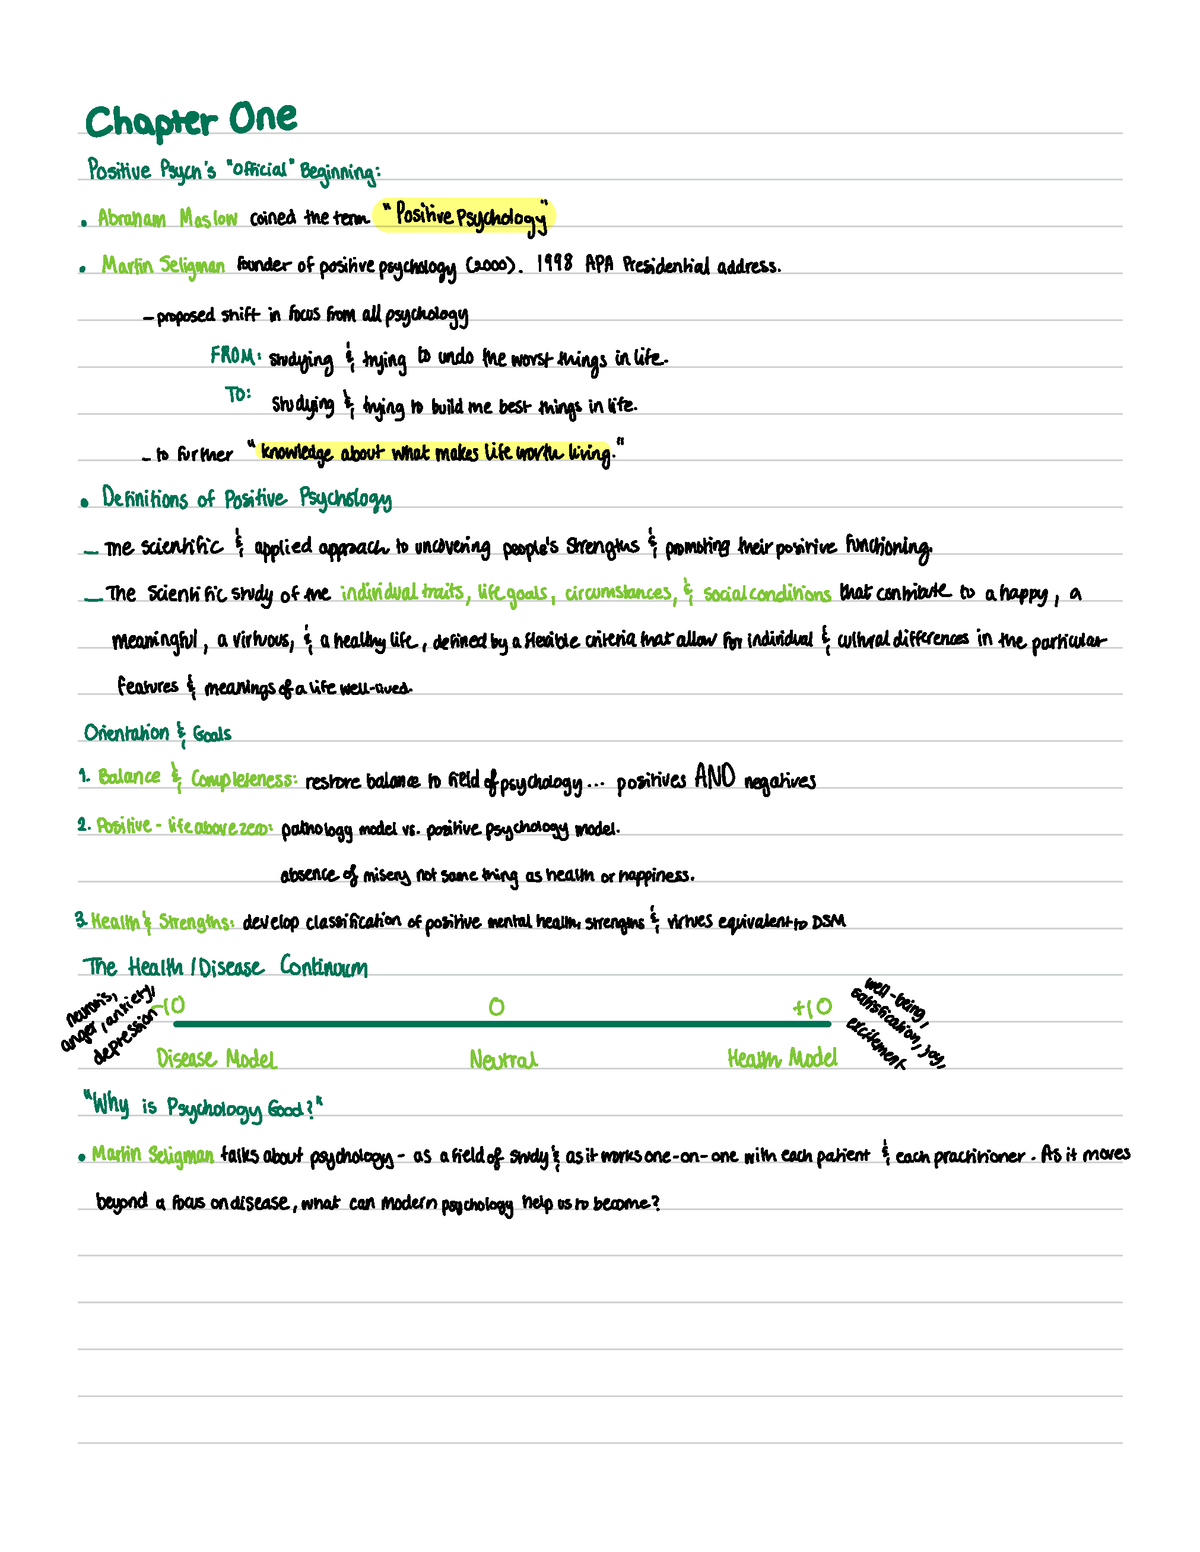 Chapter One
Positive Psych's "Official" Beginning:
• Abraham Maslow coined the term "Positive Psychology"
• Martin Seligman founder of positive psychology (2000). 1998 APA Presidential address.
- proposed shift in focus from all psychology
FROM: studying & trying to undo the worst things in life.
TO: studying & trying to build the best things in life.
- to further "knowledge about what makes life worth living."
• Definitions of Positive Psychology
- The scientific & applied approach to uncovering people's strengths & promoting their positive functioning.
- The Scientific study of the individual traits, life goals, circumstances, & social conditions that contribute to a happy, a
meaningful, a virtuous, & a healthy life, defined by a flexible criteria that allow for individual & cultural differences in the particular
features & meanings of a life well-lived.
Orientation & Goals
1. Balance & Completeness: restore balance to field of psychology... positives AND negatives
2. Positive - life above zero: pathology model vs. positive psychology model.
absence of misery not same thing as health or happiness.
3. Health & Strengths: develop classification of positive mental health, strengths & virtues equivalent to DSM
The Health/Disease Continuum
neurosis,
anger, anxiety,
depression
-10 0 +10
well-being,
satisfication, joy,
excitement
Disease Model Neutral Health Model
"Why is Psychology Good?"
• Martin Seligman talks about psychology - as a field of study & as it works one-on-one with each patient & each practitioner. As it moves
beyond a focus on disease, what can modern psychology help us to become?